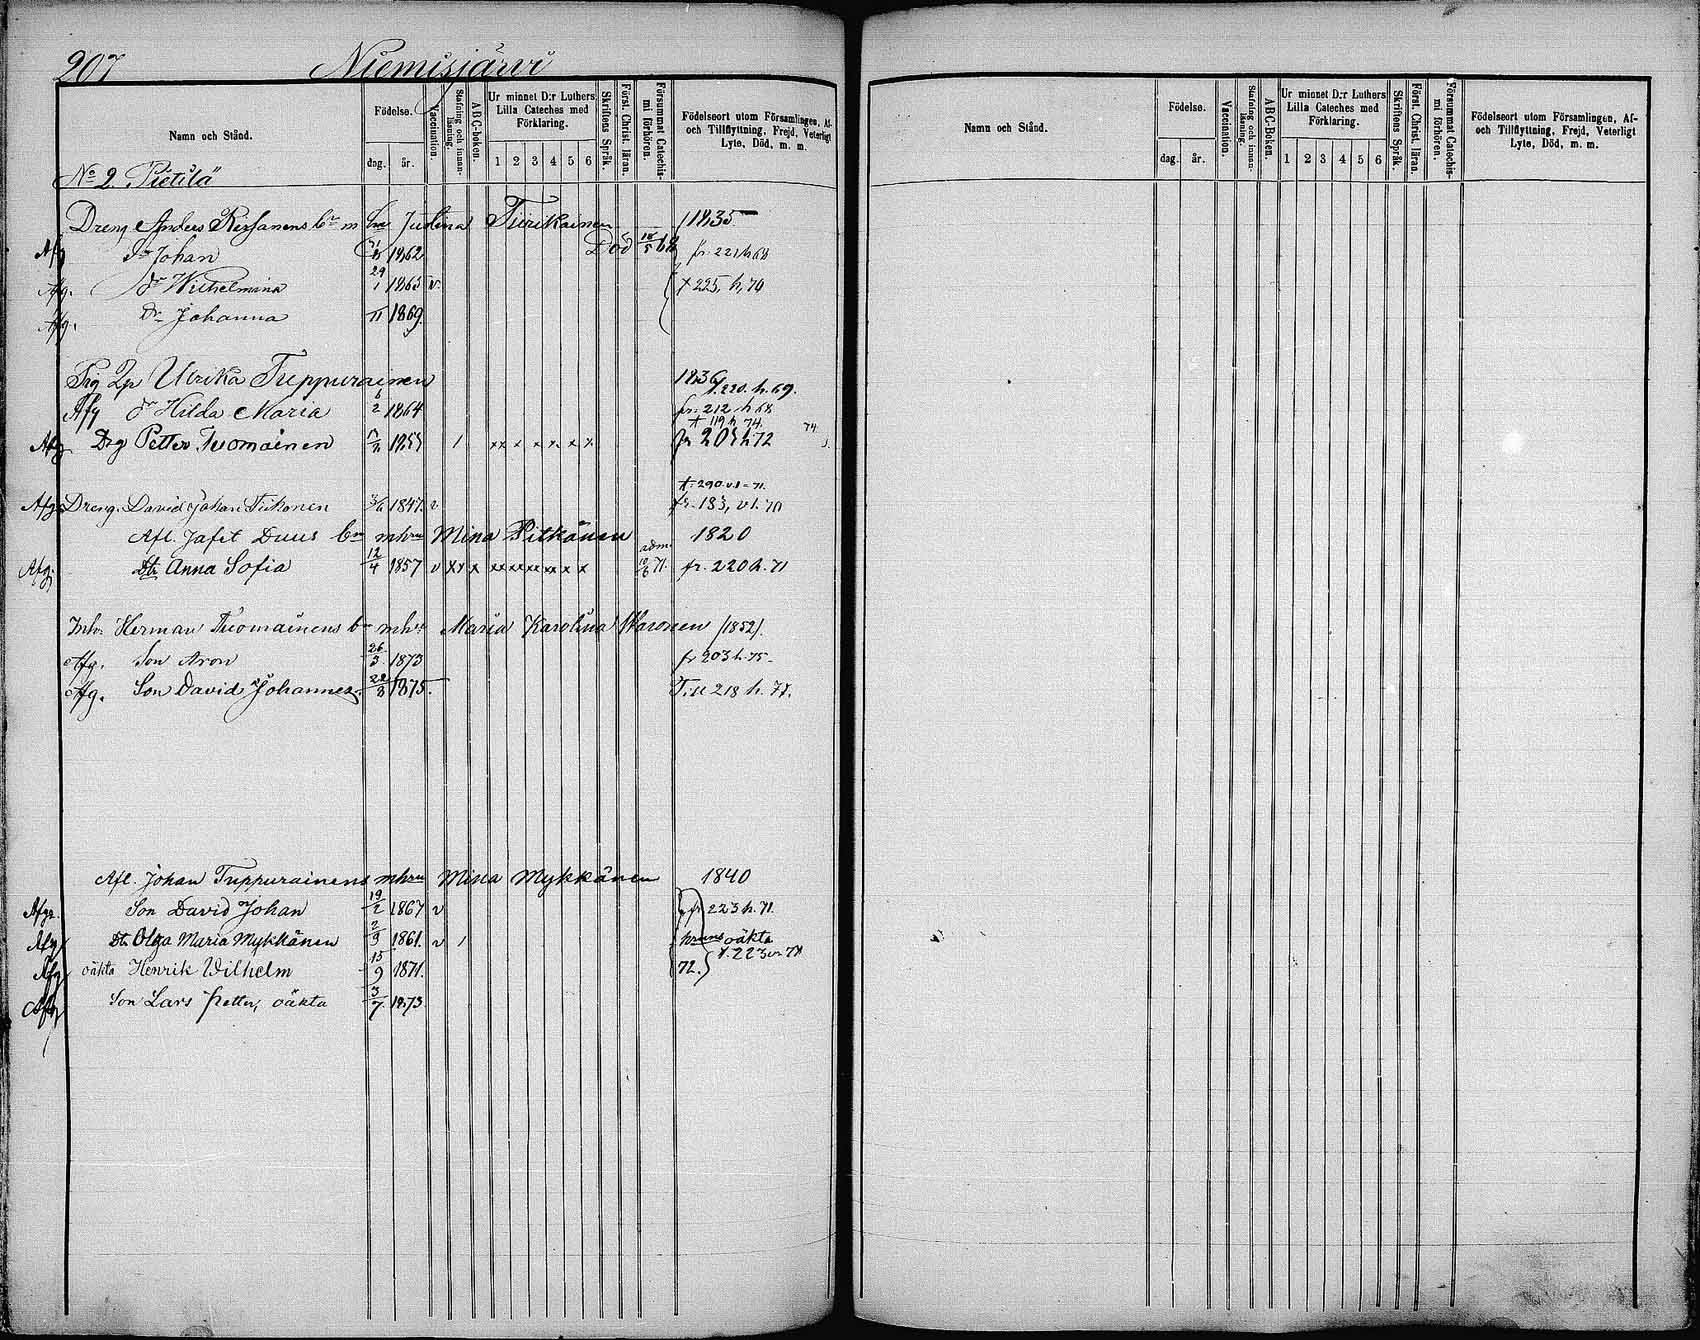 207 Niemisjärvi
Namn och Stånd.
Födelse.
dag. år.
Vaccination.
Stafning och innan-läsning.
ABC-boken.
Ur minnet D:r Luthers Lilla Cateches med Förklaring.
1 2 3 4 5 6
Skriftens Språk.
Först. Christ. läran.
Försummat Catechis-mi förhören.
Födelseort utom Församlingen, Af- och Tillflyttning, Frejd, Veterligt Lyte, Död, m. m.
Namn och Stånd.
Födelse.
dag. år.
Vaccination.
Stafning och innan-läsning.
ABC-Boken.
Ur minnet D:r Luthers Lilla Cateches med Förklaring.
1 2 3 4 5 6
Skriftens Språk.
Först. Christ. läran.
Försummat Catechis-mi förhören.
Födelseort utom Församlingen, Af- och Tillflyttning, Frejd, Veterligt Lyte, Död, m. m.
No 2 Pietilä
Dreng Anders Rissanens bn m hru Justina Tiirikainen 1835
Afg Sn Johan 1862 Död 18/5 68 fr. 221 h 68
Afg. dr Wilhelmina 29/1 1865 v. + 225, h, 70
Afg. Dr Johanna 1869.
Pig Ulrika Tuppurainen 1836 220. h. 69.
Afg dr Hilda Maria 6/2 1864 fr. 212 h 68
+ 119 h 74.
Afg Drg Petter Tuomainen 1855 / x x x x x x x fr 205 h 72
+ 290 v.s = 71.
Afg Dreng. David Johan Tiihonen 3/6 1847. v fr. 183, v s. 70
Afl. Jafet Duus bn mhru Mina Pitkänen 1820
Afg. Dtr Anna Sofia 12/4 1857 v x x x x x x x x x x adm. 10/6 71. fr. 220 h. 71
Inh. Herman Tuomainens bn mhru Maria Karolina Waronen /1852/.
Afg. Son Aron 26/3 1873 fr 203 h. 75-
Afg. Son David Johannes. 22/8 1875. Till 218 h. 77.
Afl. Johan Tuppurainens mhru Mina Mykkänen 1840
Afg. Son David Johan 19/2 1867 v fr 223 h. 71.
Afg Dtr Olga Maria Mykkänen 2/9 1861. v / oäkta
Afg oäkta Henrik Wilhelm 15/9 1871. 72.
Afg Son Lars Petter, oäkta 3/7. 1873